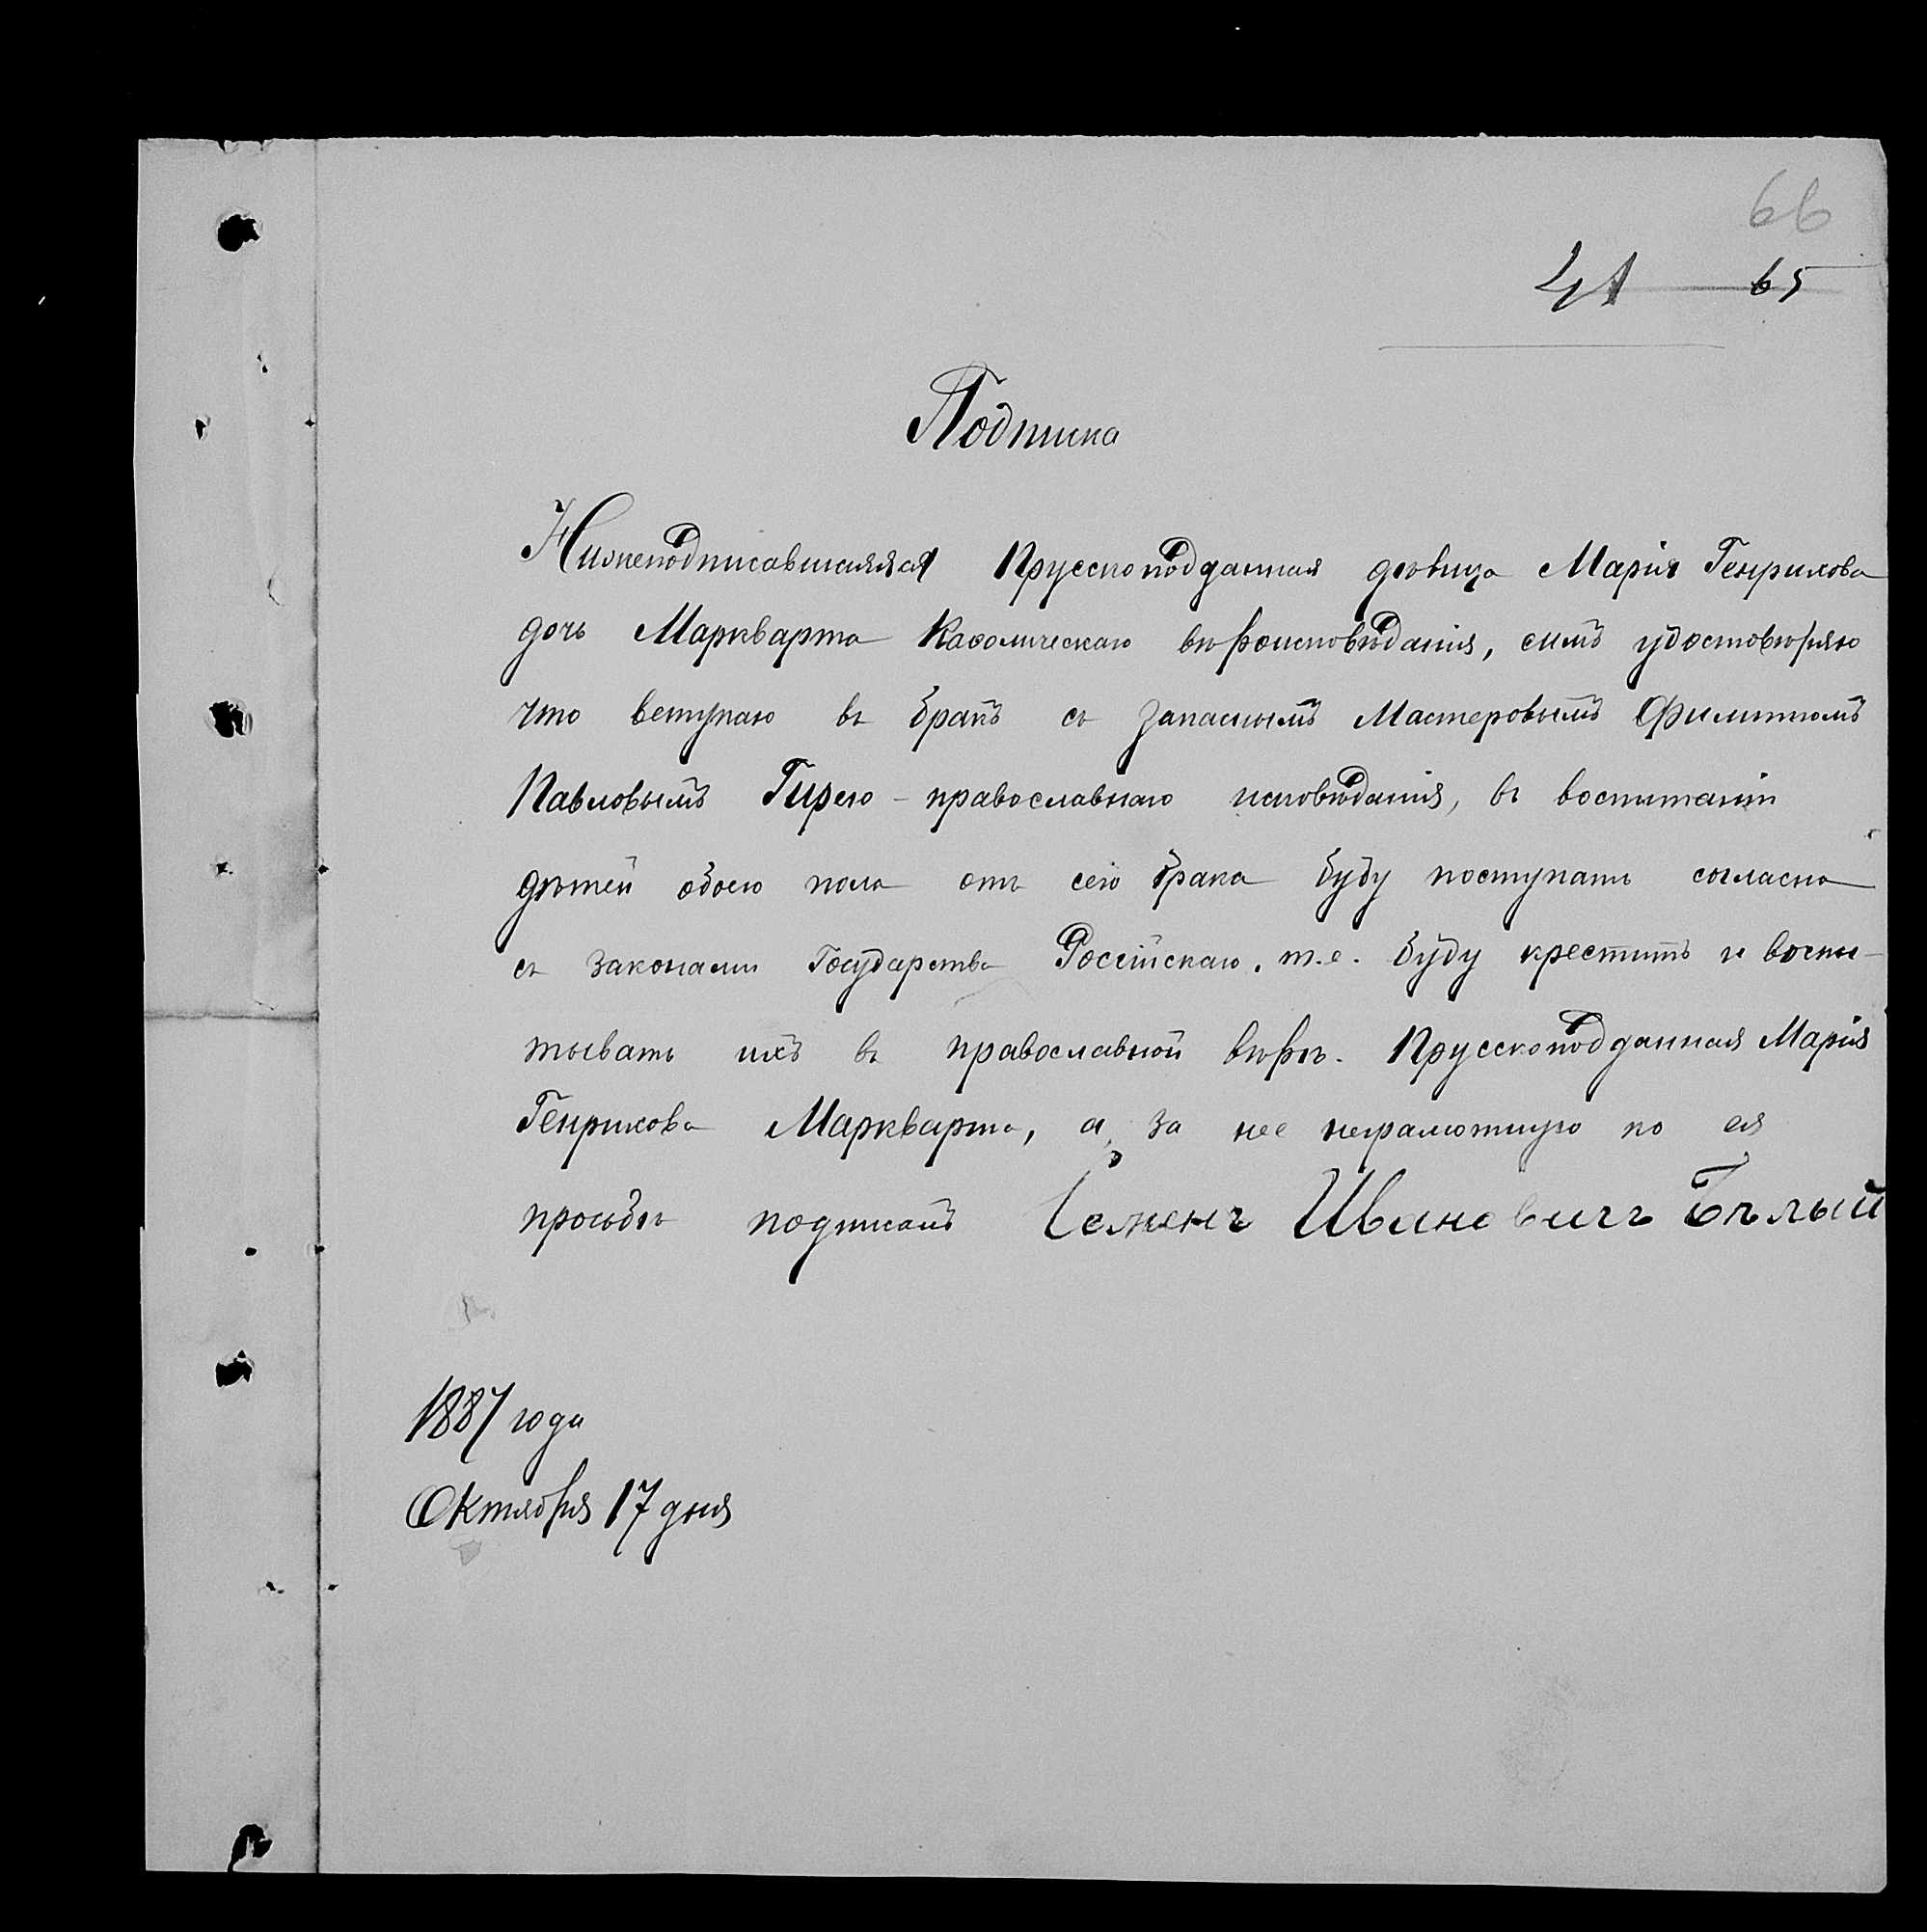 66
41 65
Подписка
Нижеподписавшаяся Прусскоподданная дѣвица Марія Генрихова
дочь Маркварта Каѳолическаго вѣроисповѣданія, симъ удостовѣряю
что вступаю въ бракъ съ запаснымъ Мастеровымъ Филиппомъ
Павловымъ Гирею - православнаго исповѣданія, въ воспитаніи
дѣтей обоего пола отъ сего брака буду поступать согласно
съ законами Государства Россійскаго, т.е. буду крестить и воспи-
тывать ихъ въ православной вѣрѣ. Прусскоподданная Марія
Генрихова Маркварта, а за нее неграмотную по ея
просьбѣ подписалъ Семенъ Ивановичъ Бѣлый
1887 года
Октября 17 дня